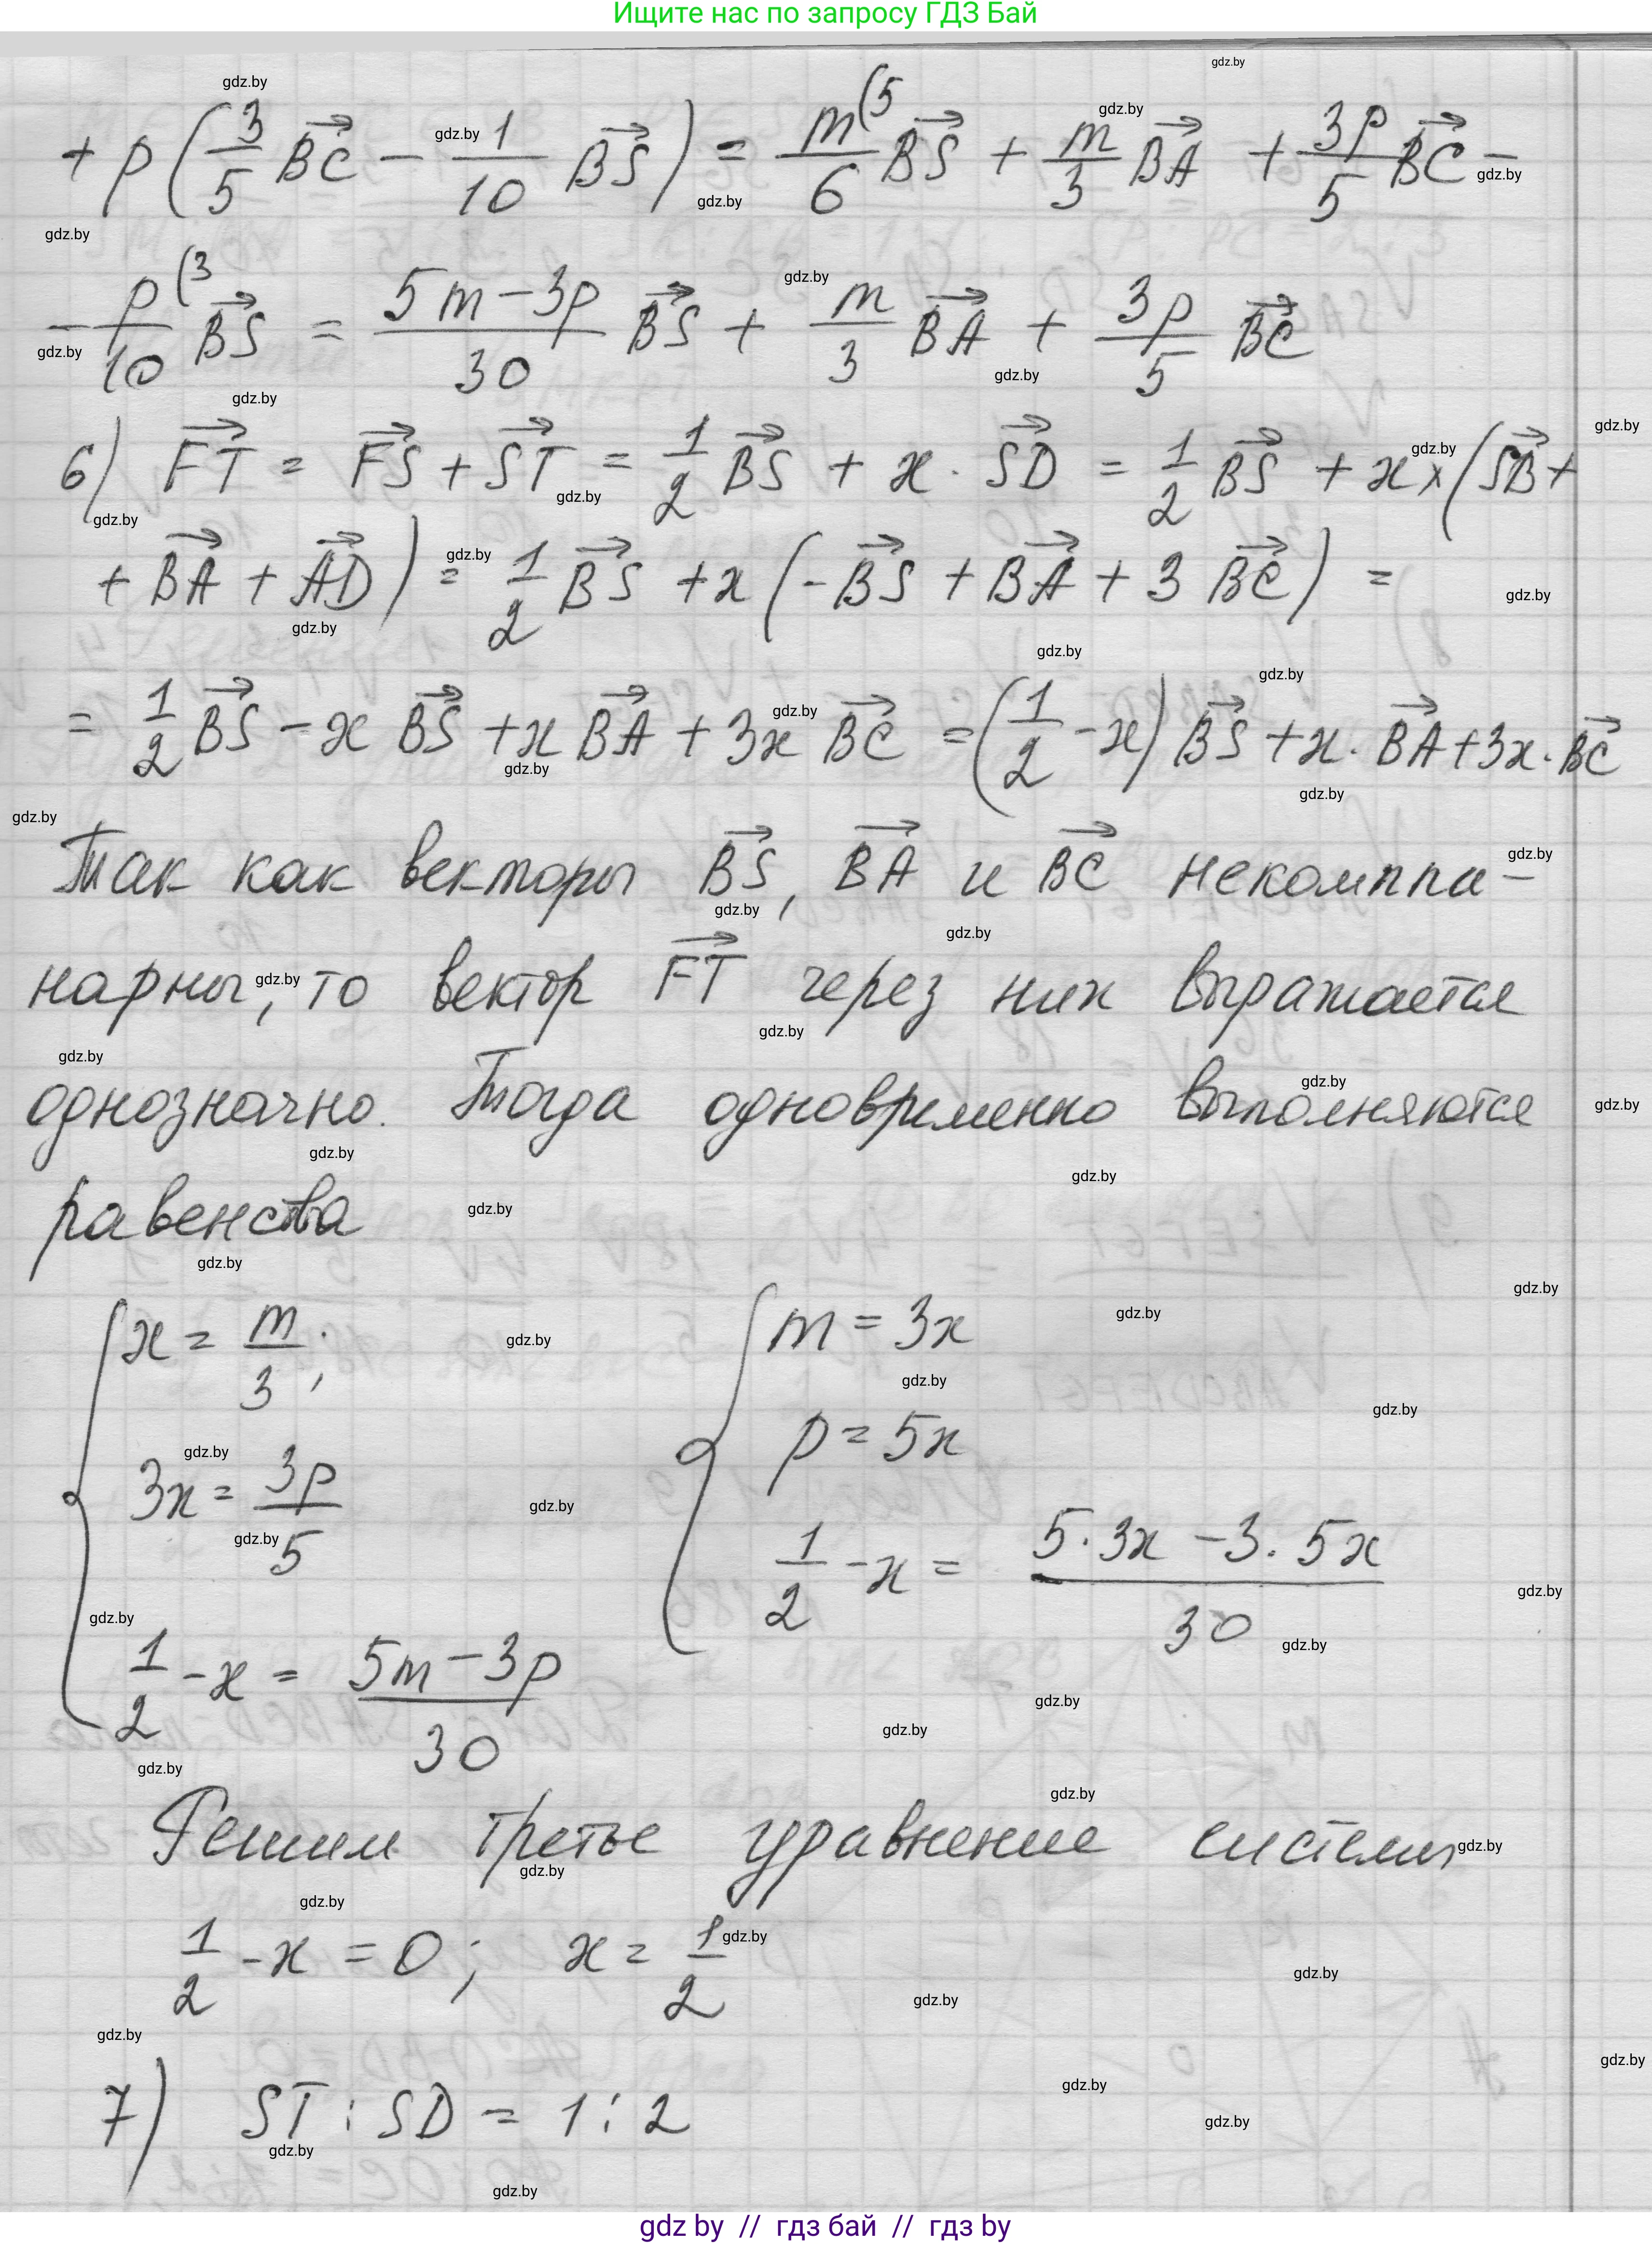 Ищите нас по запросу ГДЗ Бай
+ p(3/5 BC→ − 1/10 BS→) = m/6 (5 BS→ + m/3 BA→ + 3p/5 BC→ −
− p/10 (3 BS→ = (5m − 3p)/30 BS→ + m/3 BA→ + 3p/5 BC→
6) FT→ = FS→ + ST→ = 1/2 BS→ + x · SD→ = 1/2 BS→ + x × (SB→ +
+ BA→ + AD→) = 1/2 BS→ + x (−BS→ + BA→ + 3 BC→) =
= 1/2 BS→ − x BS→ + x BA→ + 3x BC→ = (1/2 − x) BS→ + x · BA→ + 3x · BC→
Так как векторы BS→, BA→ и BC→ некомпла-
нарны, то вектор FT→ через них выражается
однозначно. Тогда одновременно выполняются
равенства
{ x = m/3; { m = 3x
3x = 3p/5 p = 5x
1/2 − x = (5m − 3p)/30 1/2 − x = (5 · 3x − 3 · 5x)/30
Решим третье уравнение системы
1/2 − x = 0; x = 1/2
7) ST : SD = 1 : 2
gdz by // гдз бай // гдз by